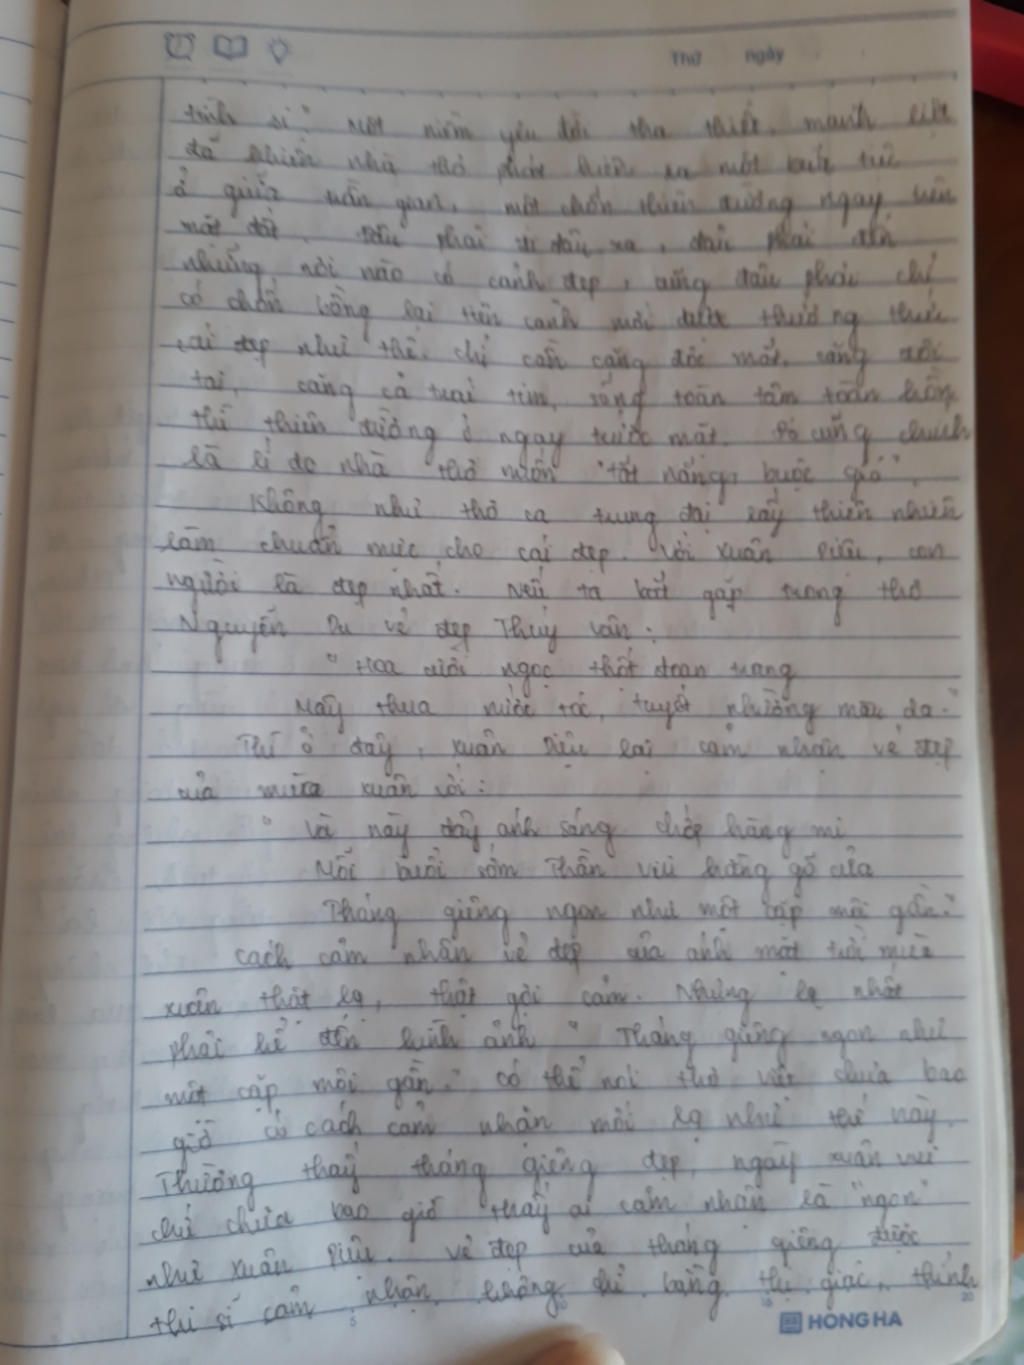 Thứ ngày
tình si". Một niềm yêu đời tha thiết, mãnh liệt
đã khiến nhà thơ phát hiện ra một bức tiên
ở giữa trần gian, một chốn thiên đường ngay trên
mặt đất. Đâu phải đi đâu xa, đâu phải đến
những nơi nào có cảnh đẹp, cũng đâu phải chỉ
có chốn bồng lai tiên cảnh mới được thưởng thức
cái đẹp như thế. chỉ cần căng đôi mắt, căng đôi
tai, căng cả trái tim, sống toàn tâm toàn hồn
thì thiên đường ở ngay trước mắt. Đó cũng chính
là lí do nhà thơ muốn "tắt nắng, buộc gió".
Không như thơ ca trung đại lấy thiên nhiên
làm chuẩn mực cho cái đẹp. Với Xuân Diệu, con
người là đẹp nhất. Nếu ta bắt gặp trong thơ
Nguyễn Du vẻ đẹp Thúy Vân:
"Hoa cười ngọc thốt đoan trang
Mây thua nước tóc, tuyết nhường màu da."
Thì ở đây, Xuân Diệu lại cảm nhận vẻ đẹp
của mùa xuân với:
"Và này đây ánh sáng chớp hàng mi
Mỗi buổi sớm Thần vui hằng gõ cửa
Tháng giêng ngon như một cặp môi gần."
Cách cảm nhận vẻ đẹp của ánh mặt trời mùa
xuân thật lạ, thật gợi cảm. Nhưng lạ nhất
phải kể đến hình ảnh "Tháng giêng ngon như
một cặp môi gần." Có thể nói thơ Việt chưa bao
giờ có cách cảm nhận mới lạ như thế này.
Thường thấy tháng giêng đẹp, ngày xuân vui
chứ chưa bao giờ thấy ai cảm nhận là "ngon"
như Xuân Diệu. Vẻ đẹp của tháng giêng được
thi sĩ cảm nhận không chỉ bằng thị giác, thính
5 10 15 20
HONG HA